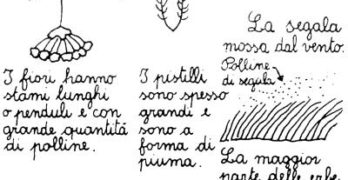 I fiori hanno
stami lunghi
o penduli e con
grande quantità
di polline.
I pistilli
sono spesso
grandi e
sono a
forma di
piuma.
La segala
mossa dal vento.
Polline
di segala
La maggior
parte delle erbe